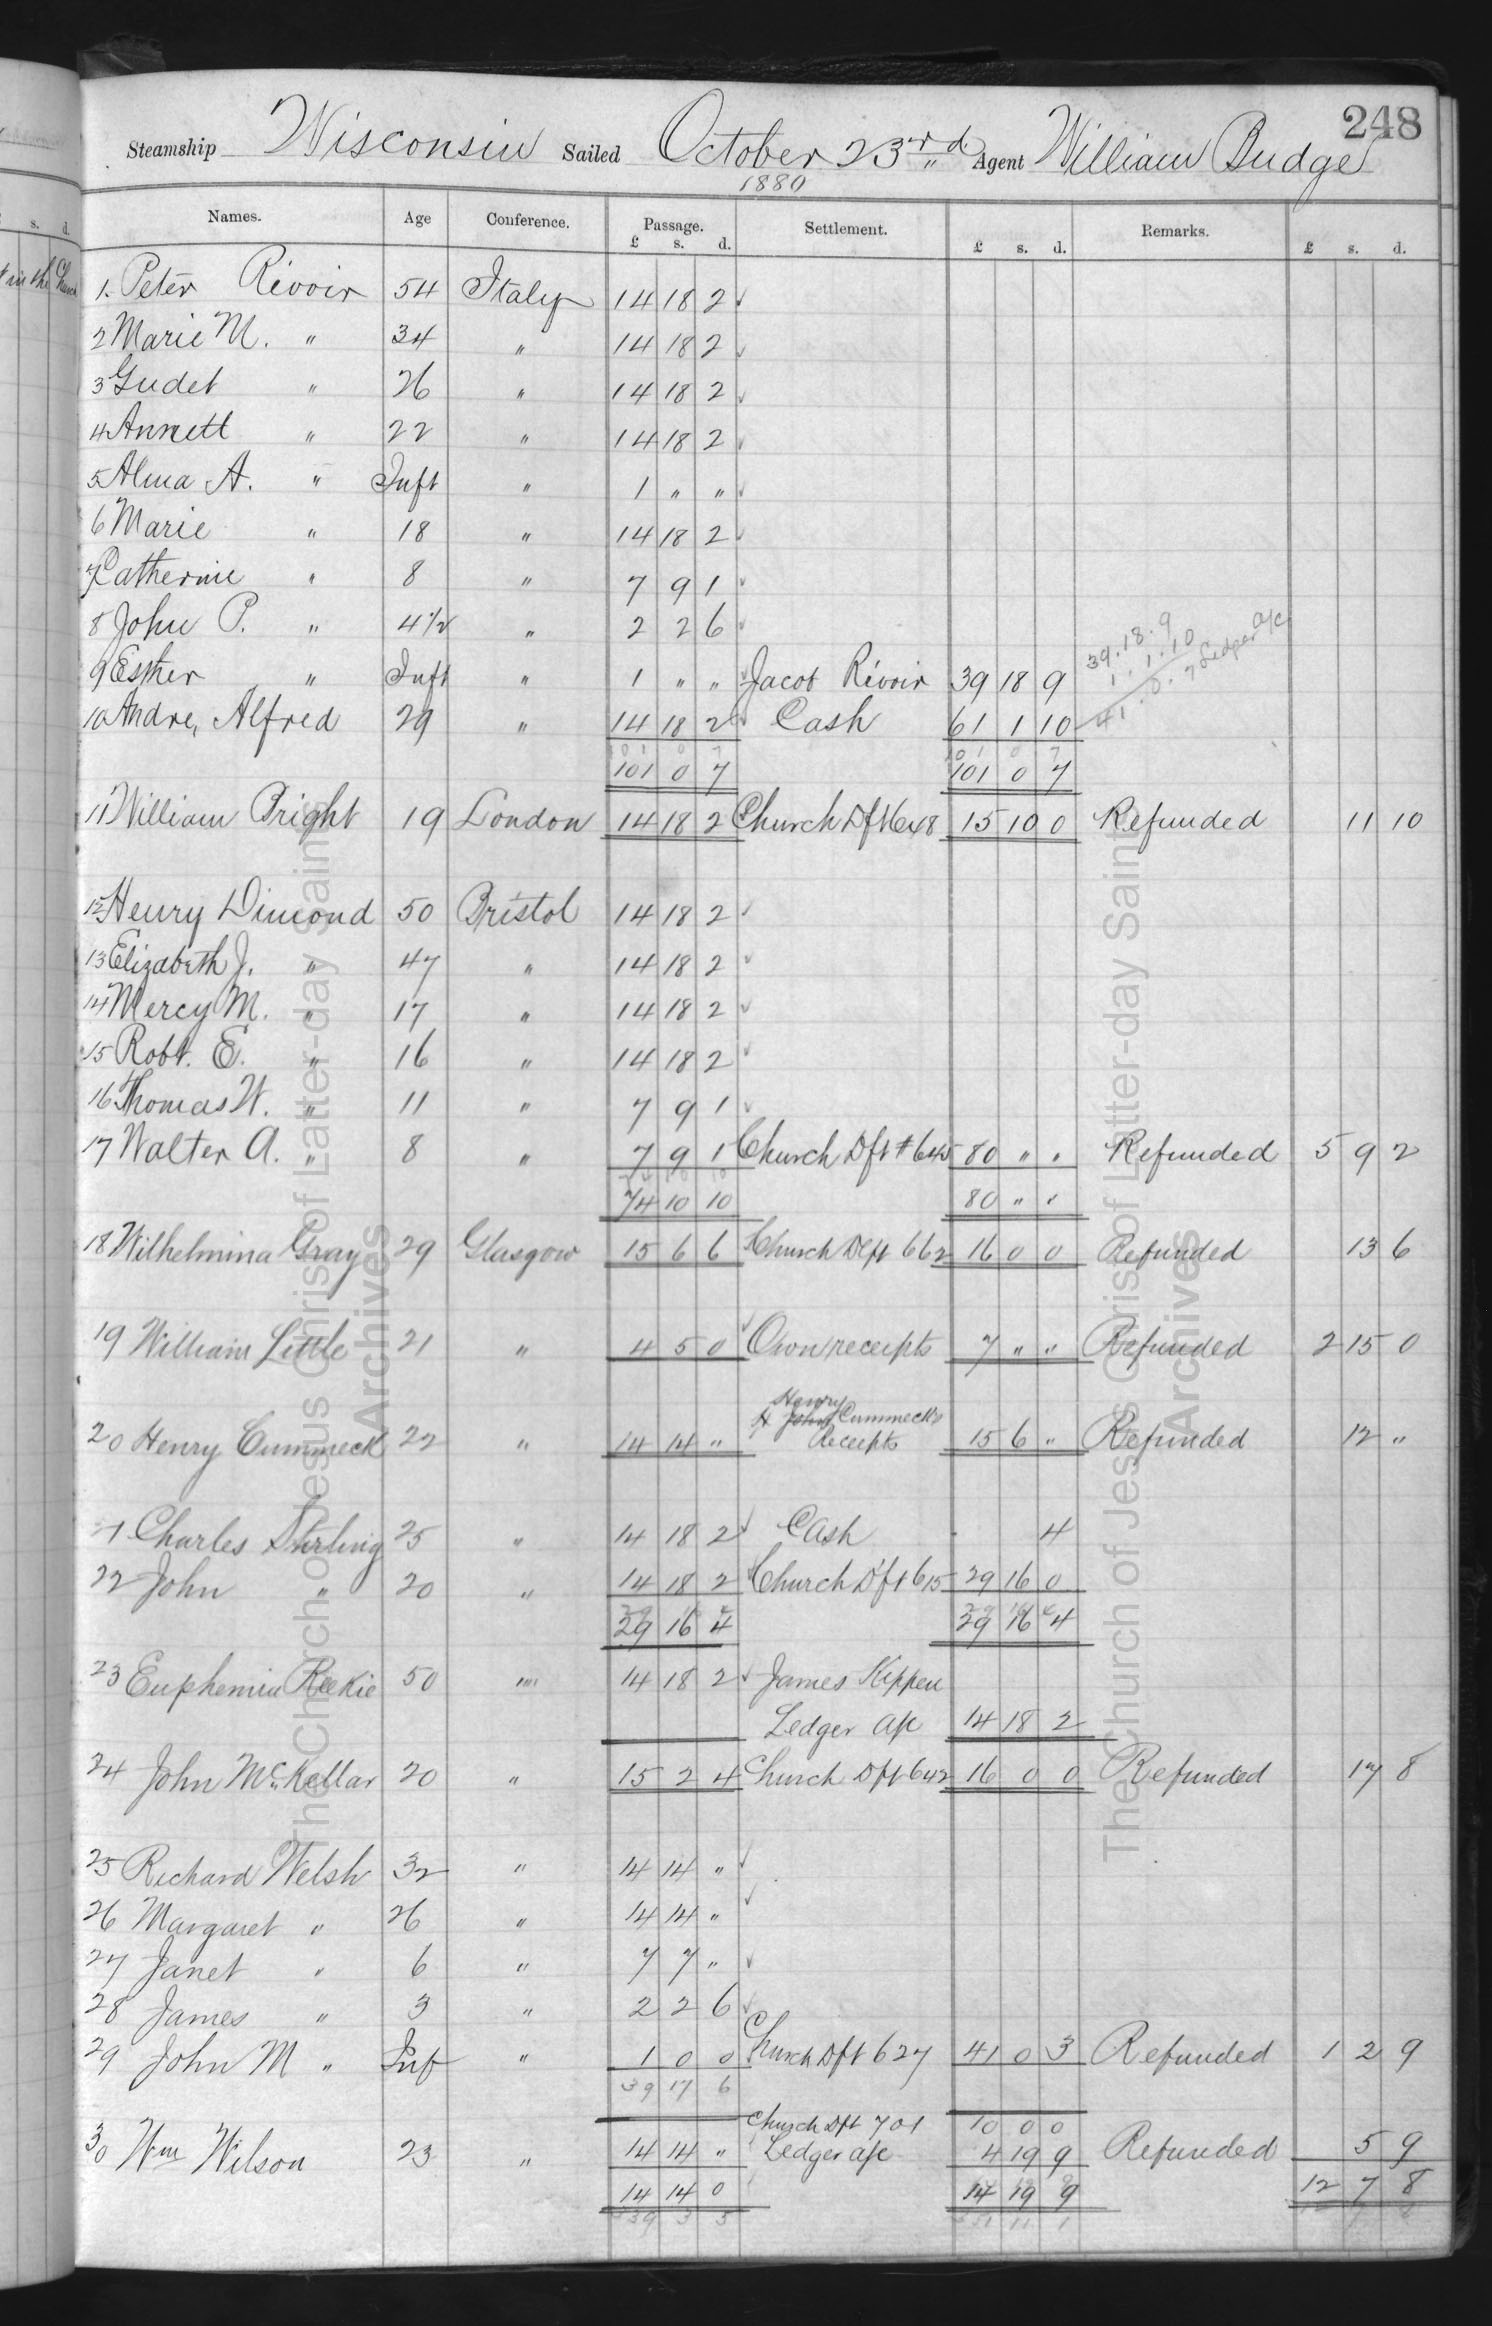 248
Steamship Wisconsin Sailed October 23rd Agent William Budge
1880
Names. Age Conference. Passage. Settlement. Remarks.
£ s. d. £ s. d. £ s. d.
1. Peter Rivoir 54 Italy 14 18 2 ✓
2 Marie M. " 34 " 14 18 2 ✓
3 Gudet " 26 " 14 18 2 ✓
4 Annett " 22 " 14 18 2 ✓
5 Alma A. " Inft " 1 " " ✓
6 Marie " 18 " 14 18 2 ✓
7 Catherine " 8 " 7 9 1 ✓
8 John P. " 4 1/2 " 2 2 6 ✓
9 Esther " Inft " 1 " " ✓ Jacob Rivoir 39 18 9
39.18.9
1.1.10
41.0.7 Ledger a/c
10 Andre, Alfred 29 " 14 18 2 ✓ Cash 61 1 10
101 0 7 101 0 7
11 William Bright 19 London 14 18 2 Church Dft 648 15 10 0 Refunded 11 10
12 Henry Dimond 50 Bristol 14 18 2 ✓
13 Elizabeth J. " 47 " 14 18 2 ✓
14 Mercy M. " 17 " 14 18 2 ✓
15 Robt. E. " 16 " 14 18 2 ✓
16 Thomas W. " 11 " 7 9 1 ✓
17 Walter A. " 8 " 7 9 1 Church Dft #645 80 " " Refunded 5 9 2
74 10 10 80 " "
18 Wilhelmina Gray 29 Glasgow 15 6 6 Church Dft 662 16 0 0 Refunded 13 6
19 William Little 21 " 4 5 0 ✓ Own receipts 7 " " Refunded 2 15 0
Henry
20 Henry Cummeck 22 " 14 14 " John Cummeck's Receipts 15 6 " Refunded 12 "
21 Charles Stirling 25 " 14 18 2 ✓ Cash 4
22 John " 20 " 14 18 2 ✓ Church Dft 615 29 16 0
29 16 4 29 16 4
23 Euphemia Reekie 50 " 14 18 2 ✓ James Kippen
Ledger a/c 14 18 2
24 John McKellar 20 " 15 2 4 Church Dft 642 16 0 0 Refunded 17 8
25 Richard Welsh 32 " 14 14 " ✓
26 Margaret " 26 " 14 14 " ✓
27 Janet " 6 " 7 7 " ✓
28 James " 3 " 2 2 6 ✓
29 John M " Inf " 1 0 0 Church Dft 627 41 0 3 Refunded 1 2 9
39 17 6
Church Dft 701 10 0 0
30 Wm Wilson 23 " 14 14 " Ledger a/c 4 19 9 Refunded 5 9
14 14 0 14 19 9 12 7 8
The Church of Jesus Christ of Latter-day Saints
Archives
The Church of Jesus Christ of Latter-day Saints
Archives